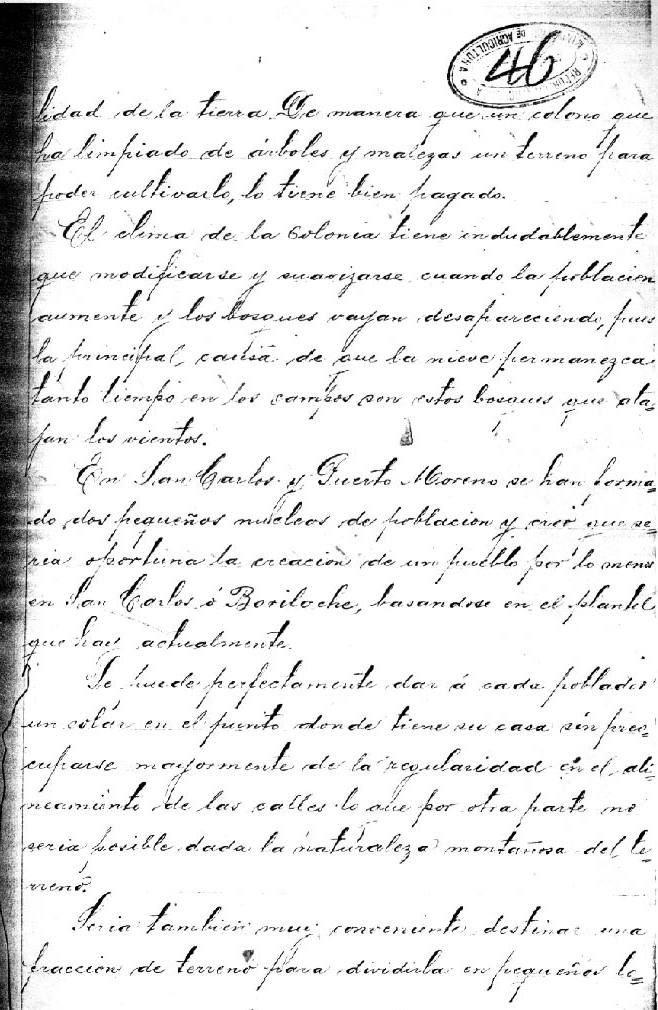 46
DE AGRICULTURA
lidad de la tierra De manera que un colono que
ha limpiado de árboles y malezas un terreno para
poder cultivarlo, lo tiene bien pagado.
El clima de la Colonia tiene indudablemente
que modificarse y suavizarse cuando la poblacion
aumente y los bosques vayan desapareciendo, pues
la principal causa de que la nieve permanezca
tanto tiempo en los campos son estos bosques que ata=
jan los vientos.
En San Carlos y Puerto Moreno se han forma=
do dos pequeños nucleos de poblacion y creo que se=
ria oportuna la creacion de un pueblo por lo menos
en San Carlos ó Bariloche, basandose en el plantel
que hay actualmente.
Se puede perfectamente dar á cada poblador
un solar en el punto donde tiene su casa sin preo=
cuparse mayormente de la regularidad en el ali=
neamiento de las calles lo que por otra parte no
seria posible dada la naturaleza montañosa del te=
rreno.
Seria tambien muy conveniente destinar una
fraccion de terreno para dividirla en pequeños lo=